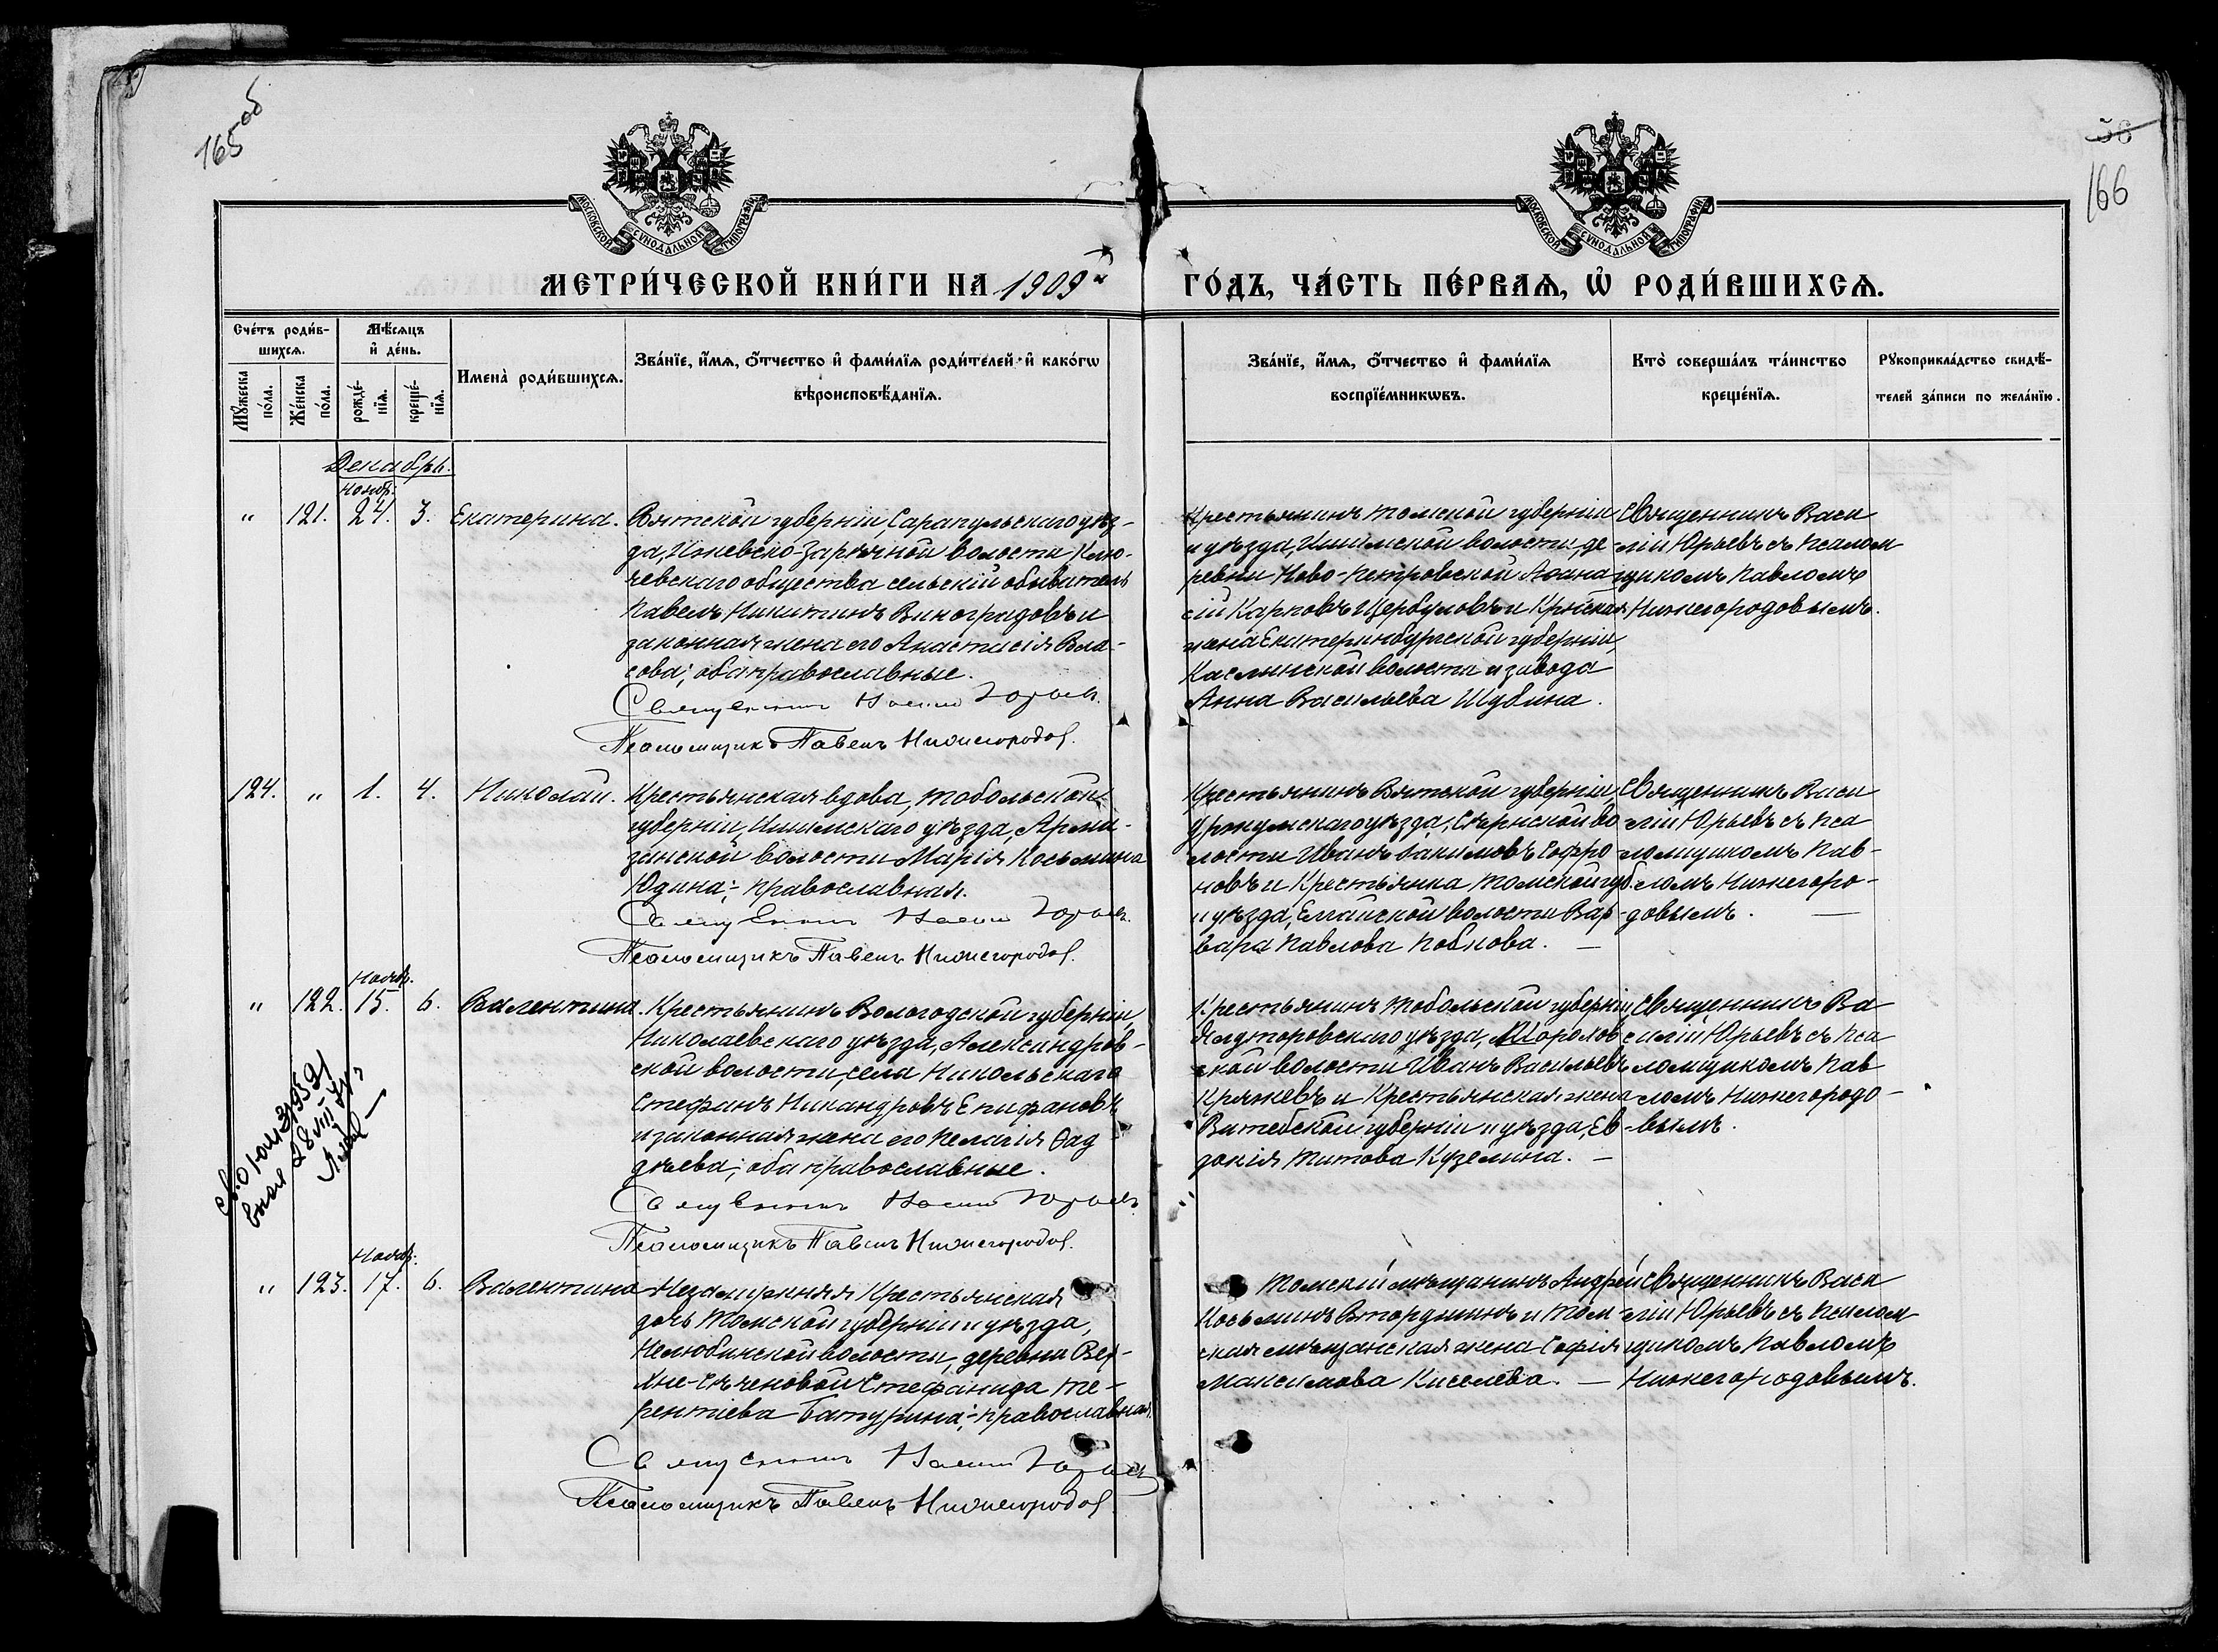 165 об
56
166
МОСКОВСКОЙ СѴНОДАЛЬНОЙ ТИПОГРАФІИ
МОСКОВСКОЙ СѴНОДАЛЬНОЙ ТИПОГРАФІИ
МЕТРИ́ЧЕСКОЙ КНИ́ГИ НА 1909й ГО́ДЪ, ЧА́СТЬ ПЕ́РВАѦ, Ѡ҆ РОДИ́ВШИХСѦ.
Сче́тъ роди́в-
шихсѧ.
Мѣ́сѧцъ
и҆ де́нь.
Мꙋ́жеска
по́ла.
Же́нска
по́ла.
рожде́-
нїѧ.
креще́-
нїѧ.
Имена̀ роди́вшихсѧ.
Зва́нїе, и҆́мѧ, ѻ҆́тчество и҆ фами́лїѧ роди́телей и҆ како́гѡ
вѣроисповѣ́данїѧ.
Зва́нїе, и҆́мѧ, ѻ҆́тчество и҆ фами́лїѧ
воспрїе́мникѡвъ.
Кто̀ соверша́лъ та́инство
креще́нїѧ.
Рꙋкоприкла́дство свидѣ́-
телей за́писи по жела́нїю.
Декабрь.
Ноябр.
" 121. 24. 3. Екатерина.
Вятской губерніи, Сарапульскаго уѣз-
да, Ижевско-Зарѣчной волости, Клю-
чевскаго общества сельскій обыватель
Павелъ Никитинъ Виноградовъ и
законная жена его Анастасія Вла-
сова; оба православные.
Священникъ Василій Юрьевъ.
Псаломщикъ Павелъ Нижегородов.
Крестьянинъ Томской губерніи
и уѣзда, Ишимской волости, де-
ревни Ново-Петровской Аѳана
сій Карповъ Щербуловъ и Крест­ская
жена Екатеринбургской губерніи,
Каслинской волости и завода
Анна Васильева Шубина.
Священникъ Васи
лій Юрьевъ съ псалом
щикомъ Павломъ
Нижегородовымъ.
124. " 1. 4. Николай.
Крестьянская вдова, Тобольской
губерніи, Ишимскаго уѣзда, Арма-
занской волости Марія Косьмина
Юдина; православная.
Священникъ Василій Юрьевъ.
Псаломщикъ Павелъ Нижегородов.
Крестьянинъ Вятской губерніи,
Уржумскаго уѣзда, Сернской во
лости Иванъ Іакимовъ Софро
новъ и Крестьянка Томской губ.
и уѣзда, Елгайской волости Вар-
вара Павлова Побкова. —
Священникъ Васи
лій Юрьевъ съ пса
ломщикомъ Пав-
ломъ Нижегоро-
довымъ. —
Ноябр.
" 122. 15. 6. Валентина.
Крестьянинъ Вологодской губерніи,
Николаевскаго уѣзда, Александров-
ской волости, села Никольскаго
Стефанъ Никандровъ Епифановъ
и законная жена его Пелагія Ѳад
дѣева; оба православные.
Священникъ Василій Юрьевъ
Псаломщикъ Павелъ Нижегородов.
Крестьянинъ Тобольской губерніи,
Ялуторовскаго уѣзда, Шороховс
ской волости Иванъ Васильевъ
Кряжевъ и Крестьянская жена
Витебской губерніи и уѣзда, Ев-
докія Титова Куземина. —
Священникъ Ва
силій Юрьевъ съ пса
ломщикомъ Пав
ломъ Нижегородо-
вымъ.
Ноябр.
" 123. 17. 6. Валентина
Незамужняя Крестьянская
дочь Томской губерніи и уѣзда,
Нелюбинской волости, деревни Вер-
хне-Сѣченовой Стефанида Те-
рентіева Батурина; православная.
Священникъ Василій Юрьевъ
Псаломщикъ Павелъ Нижегородов.
Томскій мѣщанинъ Андрей
Косьминъ Втордминъ и Том-
ская мѣщанская жена Софія
Максимова Киселева. —
Священникъ Васи
лій Юрьевъ съ псалом
щикомъ Павломъ
Нижегородовымъ.